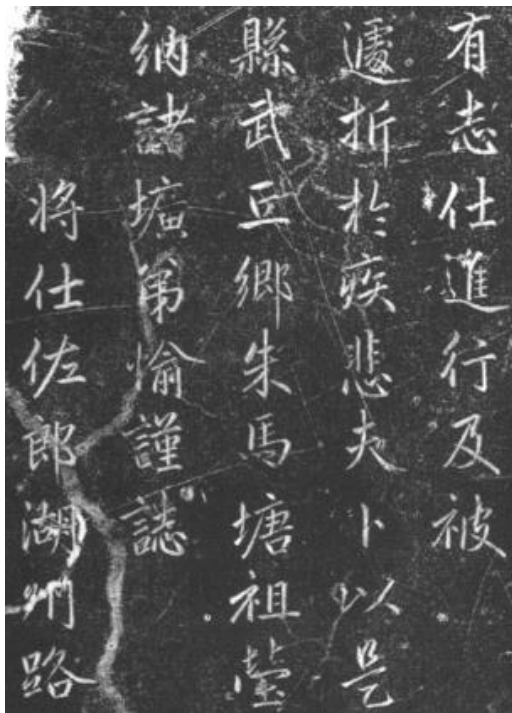 有志仕進行及被
遽折於疾悲夫卜以是
縣武丘鄉朱馬塘祖塋
納諸壙弟愉謹誌
将仕佐郎湖州路